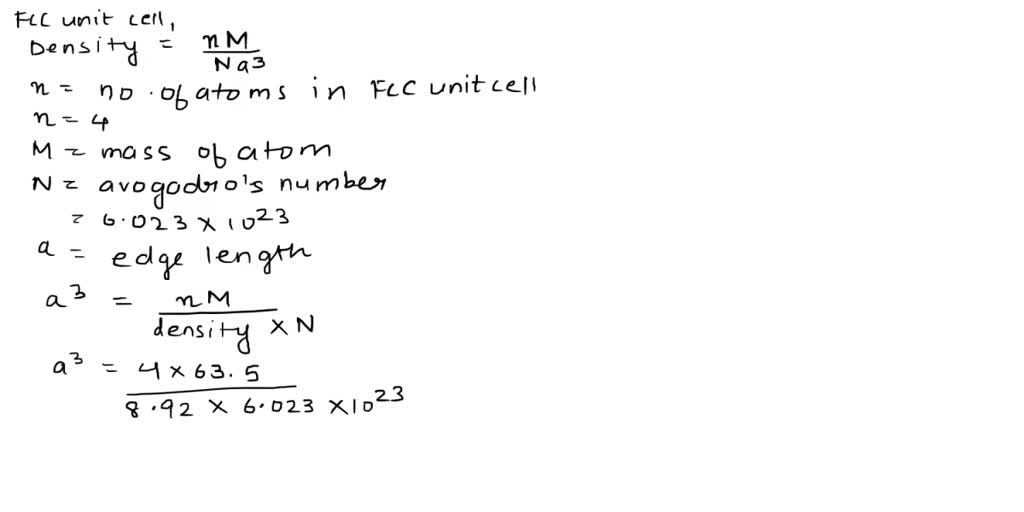 FCC unit cell,
Density = nM / Na³
n = no. of atoms in FCC unit cell
n = 4
M = mass of atom
N = avogadro's number
= 6.023 × 10²³
a = edge length
a³ = nM / density × N
a³ = 4 × 63.5 / 8.92 × 6.023 × 10²³